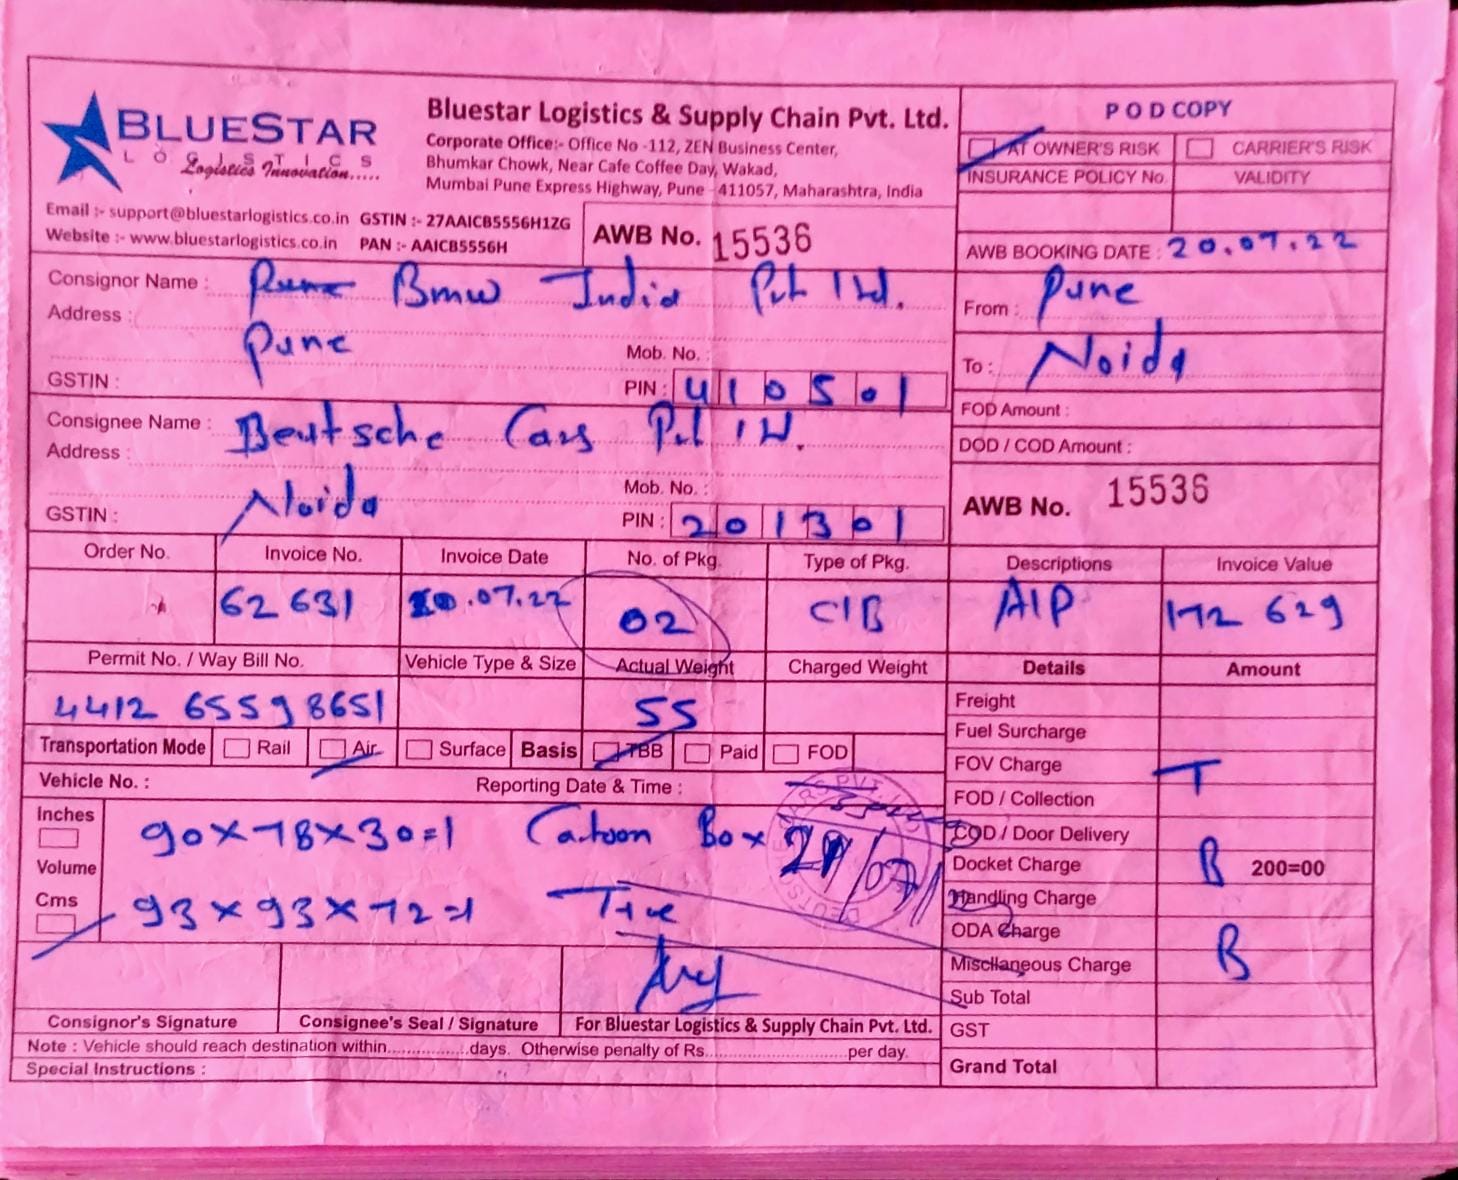 BLUESTAR
LOGISTICS
Logistics Innovation.....
Bluestar Logistics & Supply Chain Pvt. Ltd.
Corporate Office:- Office No -112, ZEN Business Center,
Bhumkar Chowk, Near Cafe Coffee Day, Wakad,
Mumbai Pune Express Highway, Pune - 411057, Maharashtra, India
Email :- support@bluestarlogistics.co.in GSTIN :- 27AAICB5556H1ZG
Website :- www.bluestarlogistics.co.in PAN :- AAICB5556H
AWB No. 15536
POD COPY
AT OWNER'S RISK CARRIER'S RISK
INSURANCE POLICY No. VALIDITY
AWB BOOKING DATE : 20.07.22
Consignor Name : Bmw India Pvt ltd.
Address : Pune
Mob. No. :
GSTIN : PIN : 410501
From : Pune
To : Noida
Consignee Name : Deutsche Cars Pvt ltd.
Address : Noida
Mob. No. :
GSTIN : PIN : 201301
FOD Amount :
DOD / COD Amount :
AWB No. 15536
Order No. Invoice No. Invoice Date No. of Pkg. Type of Pkg. Descriptions Invoice Value
62631 20.07.22 02 C/B A/P 172 629
Permit No. / Way Bill No. Vehicle Type & Size Actual Weight Charged Weight Details Amount
4412 6559 8651 55
Freight
Fuel Surcharge
Transportation Mode Rail Air Surface Basis TBB Paid FOD
FOV Charge T
Vehicle No. : Reporting Date & Time :
FOD / Collection
Inches
90x78x30=1 Catoon Box
COD / Door Delivery
Volume
Docket Charge B 200=00
Cms
93x93x72=1
Handling Charge
ODA Charge
Miscllaneous Charge B
Sub Total
Consignor's Signature Consignee's Seal / Signature For Bluestar Logistics & Supply Chain Pvt. Ltd.
GST
Note : Vehicle should reach destination within.................days. Otherwise penalty of Rs.............................per day.
Special Instructions :
Grand Total